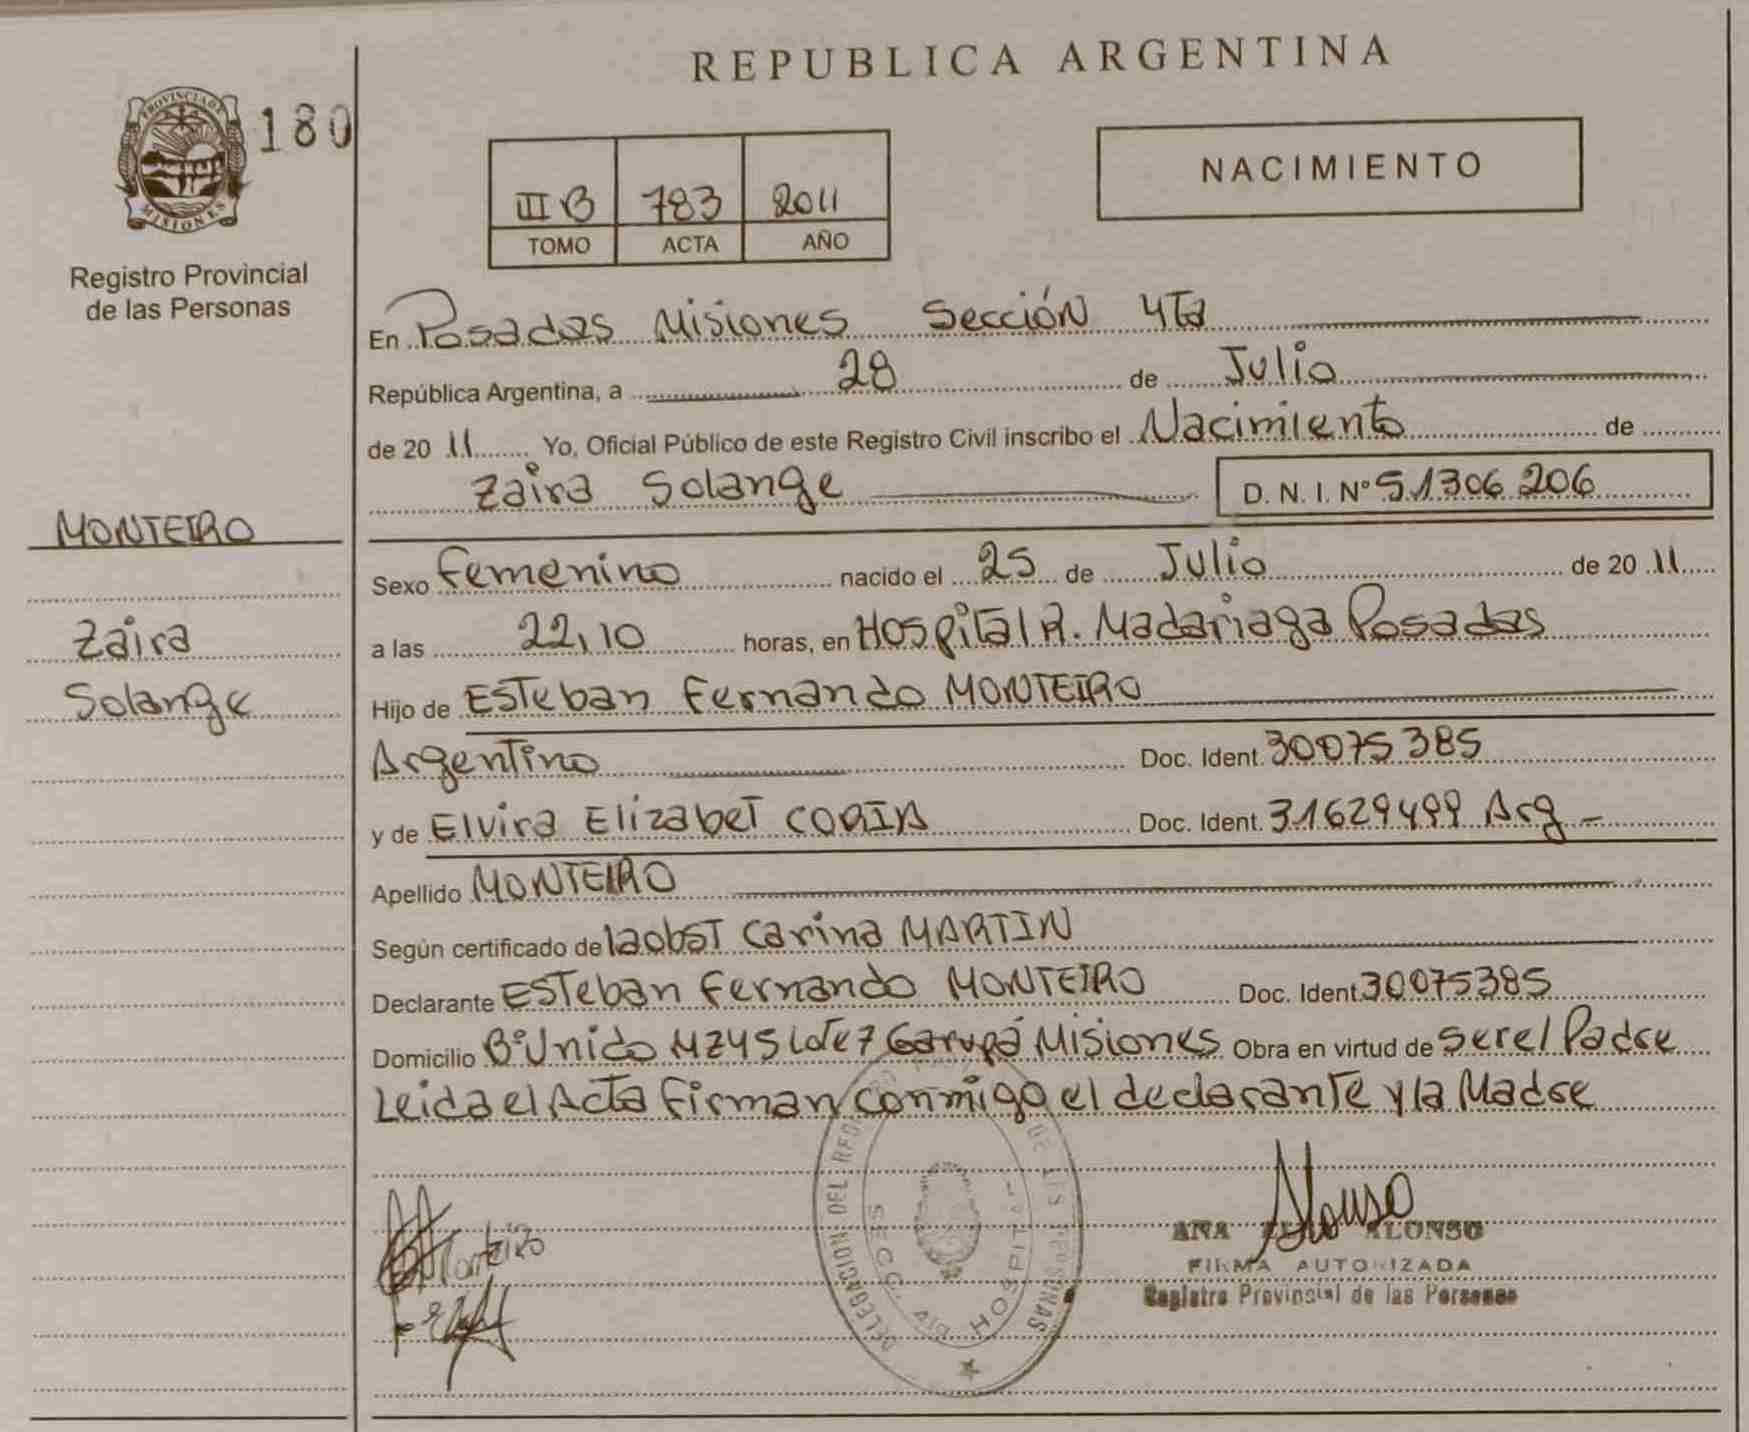 REPUBLICA ARGENTINA
PROVINCIA DE
MISIONES
180
Registro Provincial
de las Personas
III B 783 2011
TOMO ACTA AÑO
NACIMIENTO
En Posadas Misiones Sección 4Ta
República Argentina, a 28 de Julio
de 20 11 Yo, Oficial Público de este Registro Civil inscribo el Nacimiento de
Zaira Solange D. N. I. Nº 51306 206
MONTEIRO
Zaira
Solange
Sexo Femenino nacido el 25 de Julio de 20 11
a las 22,10 horas, en Hospital R. Madariaga Posadas
Hijo de Esteban Fernando MONTEIRO
Argentino Doc. Ident. 30075385
y de Elvira Elizabet Doc. Ident. 31629499 Arg -
Apellido MONTEIRO
Según certificado de la obst Carina MARTIN
Declarante Esteban Fernando MONTEIRO Doc. Ident 30075385
Domicilio Bº Unido MZ45 Lote 7 Garupá Misiones Obra en virtud de ser el Padre
Leida el Acta Firman conmigo el declarante y la Madre
DELEGACION DEL DE LAS PERSONAS
SECC. 4ta HOSPITAL
Monteiro
Alonso
ANA ALONSO
FIRMA AUTORIZADA
Registro Provincial de las Personas